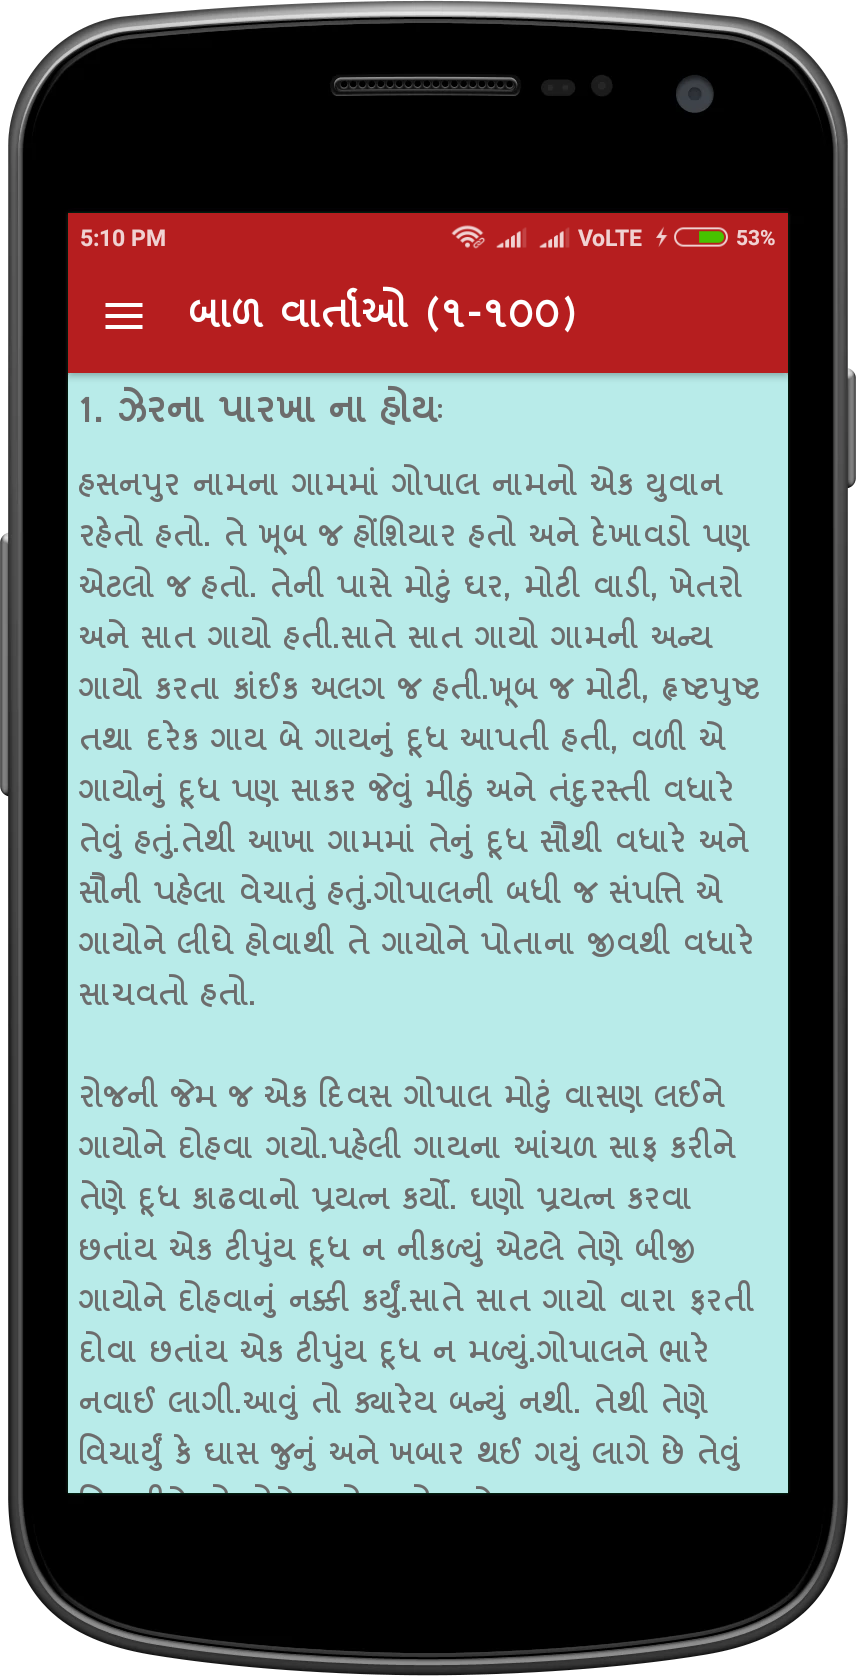 5:10 PM VoLTE 53%
બાળ વાર્તાઓ (૧-૧૦૦)
1. ઝેરના પારખા ના હોયઃ
હસનપુર નામના ગામમાં ગોપાલ નામનો એક યુવાન
રહેતો હતો. તે ખૂબ જ હોંશિયાર હતો અને દેખાવડો પણ
એટલો જ હતો. તેની પાસે મોટું ઘર, મોટી વાડી, ખેતરો
અને સાત ગાયો હતી.સાતે સાત ગાયો ગામની અન્ય
ગાયો કરતા કાંઈક અલગ જ હતી.ખૂબ જ મોટી, હૃષ્ટપુષ્ટ
તથા દરેક ગાય બે ગાયનું દૂધ આપતી હતી, વળી એ
ગાયોનું દૂધ પણ સાકર જેવું મીઠું અને તંદુરસ્તી વધારે
તેવું હતું.તેથી આખા ગામમાં તેનું દૂધ સૌથી વધારે અને
સૌની પહેલા વેચાતું હતું.ગોપાલની બધી જ સંપત્તિ એ
ગાયોને લીધે હોવાથી તે ગાયોને પોતાના જીવથી વધારે
સાચવતો હતો.
રોજની જેમ જ એક દિવસ ગોપાલ મોટું વાસણ લઈને
ગાયોને દોહવા ગયો.પહેલી ગાયના આંચળ સાફ કરીને
તેણે દૂધ કાઢવાનો પ્રયત્ન કર્યો. ઘણો પ્રયત્ન કરવા
છતાંય એક ટીપુંય દૂધ ન નીકળ્યું એટલે તેણે બીજી
ગાયોને દોહવાનું નક્કી કર્યું.સાતે સાત ગાયો વારા ફરતી
દોવા છતાંય એક ટીપુંય દૂધ ન મળ્યું.ગોપાલને ભારે
નવાઈ લાગી.આવું તો ક્યારેય બન્યું નથી. તેથી તેણે
વિચાર્યું કે ઘાસ જુનું અને ખબાર થઈ ગયું લાગે છે તેવું